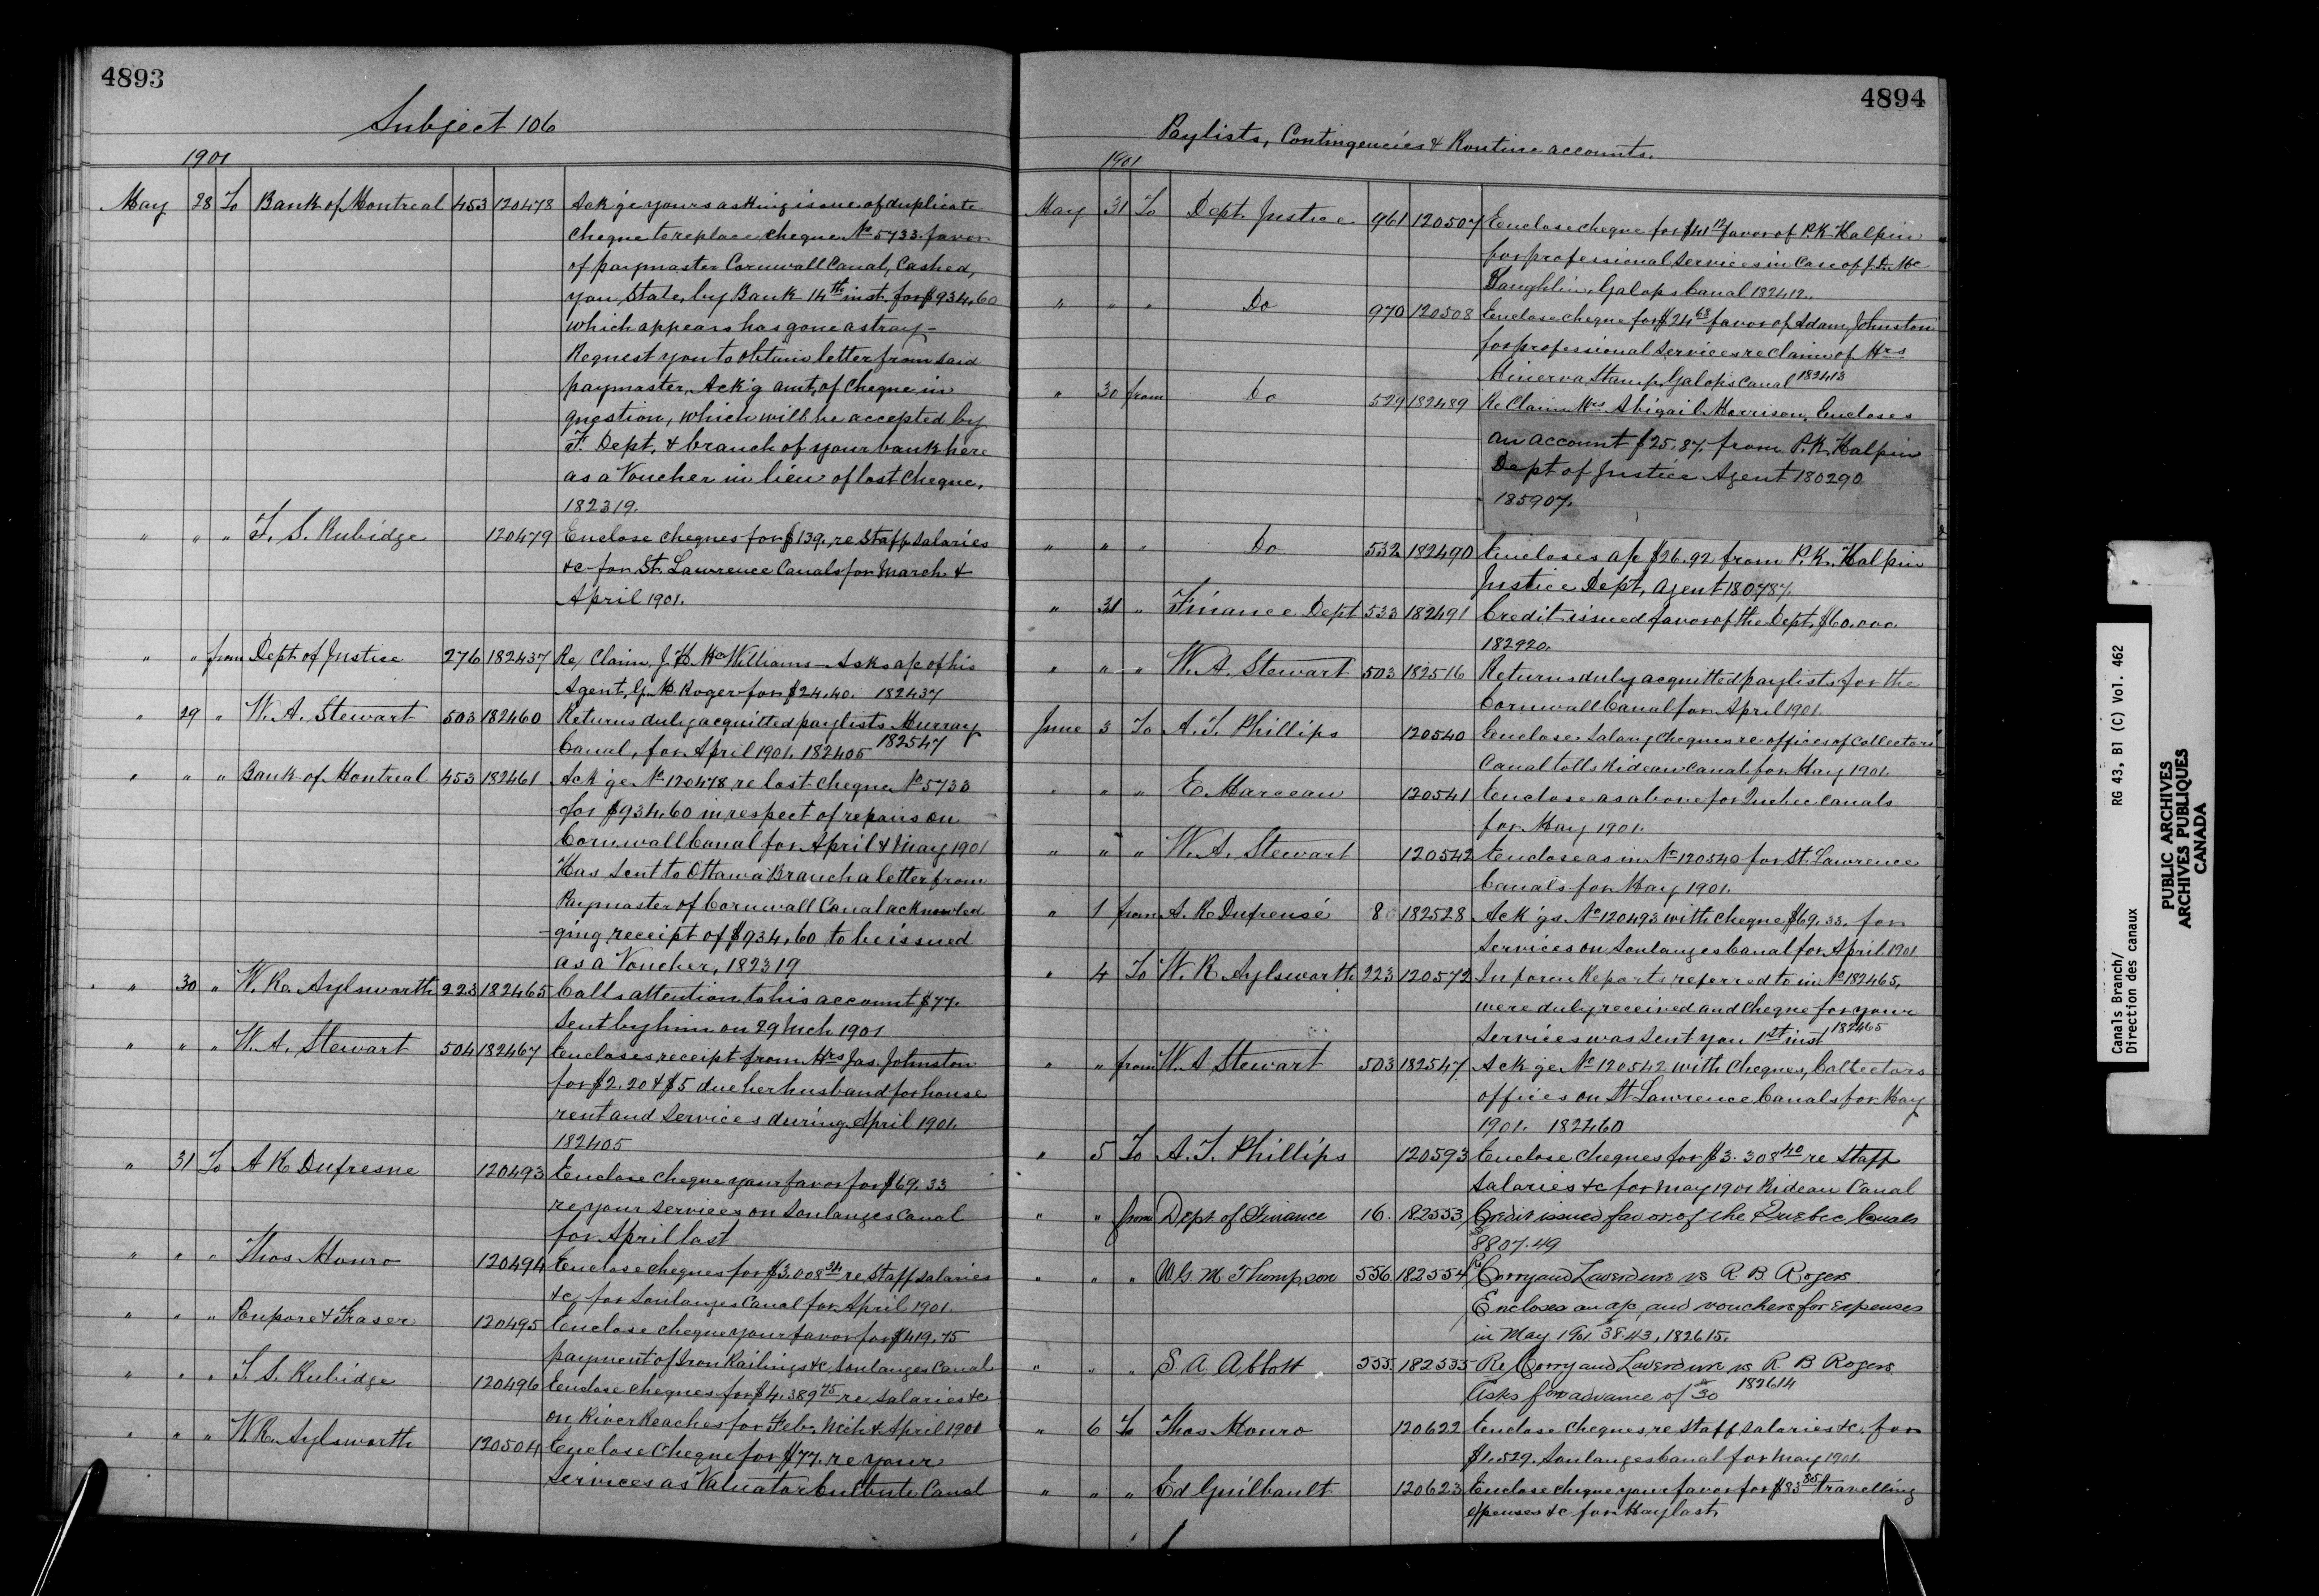 4893
Subject 106
1901
May 28 To Bank of Montreal 453 120478 Ack'ge yours asking issue of duplicate
cheque to replace cheque No 5733 favor
of paymaster Cornwall Canal, Cashed,
you State, by Bank 14th inst. for $934.60
which appears has gone astray -
Request you to obtain letter from said
paymaster, Ack'g amt, of cheque in
question, which will be accepted by
F. Dept, & branch of your bank here
as a Voucher in lieu of lost Cheque,
182319.
" " " T. S. Rubidge 120479 Enclose cheques for $139. re Staff salaries
&c for St. Lawrence Canals for March &
April 1901.
" " from Dept of Justice 276 182437 Re/ Claim J. H. McWilliams - Asks a/c of his
Agent, G. M. Roger for $24.40. 182437
" 29 " W. A. Stewart 503 182460 Returns duly acquitted paylists Murray
Canal, for April 1901. 182405 182547
" " " Bank of Montreal 453 182461 Ack'ge No 120478 re lost cheque No 5733
for $934.60 in respect of repairs on
Cornwall Canal for April & May 1901
Has sent to Ottawa Branch a letter from
Paymaster of Cornwall Canal acknowled
-ging receipt of $934.60 to be issued
as a Voucher, 182319
" 30 " W. R. Aylsworth 223 182465 Calls attention to his account $77.
sent by him on 29 Mch 1901
" " " W. A. Stewart 504 182467 Encloses receipt from Mrs Jas. Johnston
for $2.20 & $5 due her husband for house
rent and services during April 1901.
182405
" 31 To A R Dufresne 120493 Enclose cheque your favor for $69.33
re your services on Soulanges Canal
for April last
" " " Thos Monro 120494 Enclose cheques for $3,008 34 re Staff salaries
&c for Soulanges Canal for April 1901.
" " " Poupore & Fraser 120495 Enclose cheque your favor for $419.75
payment of Iron Railings &c Soulanges Canal
" " " T. S. Rubidge 120496 Enclose cheques for $4.389 75 re salaries &c
on River Reaches for Feb. Mch & April 1901
" " " W. R. Aylsworth 120504 Enclose cheque for $77. re your
services as Valuator Culbute Canal
4894
Paylists, Contingencies & Routine accounts.
1901
May 31 To Dept. Justice 961 120507 Enclose cheque for $41 12 favor of P. K. Halpin
for professional services in Case of J. D. Mc
Laughlin, Galops Canal 182412.
" " " Do 970 120508 Enclose cheque for $24 68 favor of Adam Johnston
for professional services re Claim of Mrs
Minerva Stamp, Galops Canal 182413
" 30 from Do 529 182489 Re Claim Mrs Abigail Morrison, Encloses
an account $25.87. from P. K. Halpin
Dept of Justice Agent 180290
185907.
" " " Do 532 182490 Encloses a/c $26.92 from P. K. Halpin
Justice Dept, Agent 180787.
" 31 " Finance Dept 533 182491 Credit issued favor of the Dept, $60.000
182920.
" " " W. A. Stewart 503 182516 Returns duly acquitted paylists for the
Cornwall Canal for April 1901.
June 3 To A. T. Phillips 120540 Enclose Salary cheques re offices of Collectors
Canal tolls Rideau Canal for May 1901.
" " " E. Marceau 120541 Enclose as above for Quebec Canals
for May 1901.
" " " W. A. Stewart 120542 Enclose as in No 120540 for St. Lawrence
Canals for May 1901.
" 1 from A. R. Dufresne 8 182528 Ack'ge No 120493 with cheque $69.33. for
services on Soulanges Canal for April 1901
" 4 To W. R Aylsworth 223 120572 Inform Reports referred to in No 182465,
were duly received and cheque for your
services was sent you 1st inst 182465
" " from W. A Stewart 503 182547. Ack'ge No 120542 with cheques, Collectors
offices on St Lawrence Canals for May
1901. 182460
" 5 To A. T. Phillips 120593 Enclose cheques for $3.308 40 re Staff
salaries &c for May 1901 Rideau Canal
" " from Dept of Finance 16. 182553 Credit issued favor of the Quebec Canals
$8807.49
" " " W. G. M. Thompson 556. 182554 Re/ Corry and Laverdure vs R. B. Rogers
Encloses an a/c and vouchers for expenses
in May 1901 $38.43, 182615.
" " " S. A. Abbott 555. 182555 Re/ Corry and Laverdure vs R B Rogers.
Asks for advance of $30 182614
" 6 To Thos Monro 120622 Enclose cheques, re Staff salaries &c, for
$1.529. Soulanges Canal for May 1901.
" " " Ed Guilbault 120623 Enclose cheque your favor for $83 85 travelling
expenses &c for May last.
Canals Branch/ RG 43, B1 (C) Vol. 462
Direction des canaux
PUBLIC ARCHIVES
ARCHIVES PUBLIQUES
CANADA